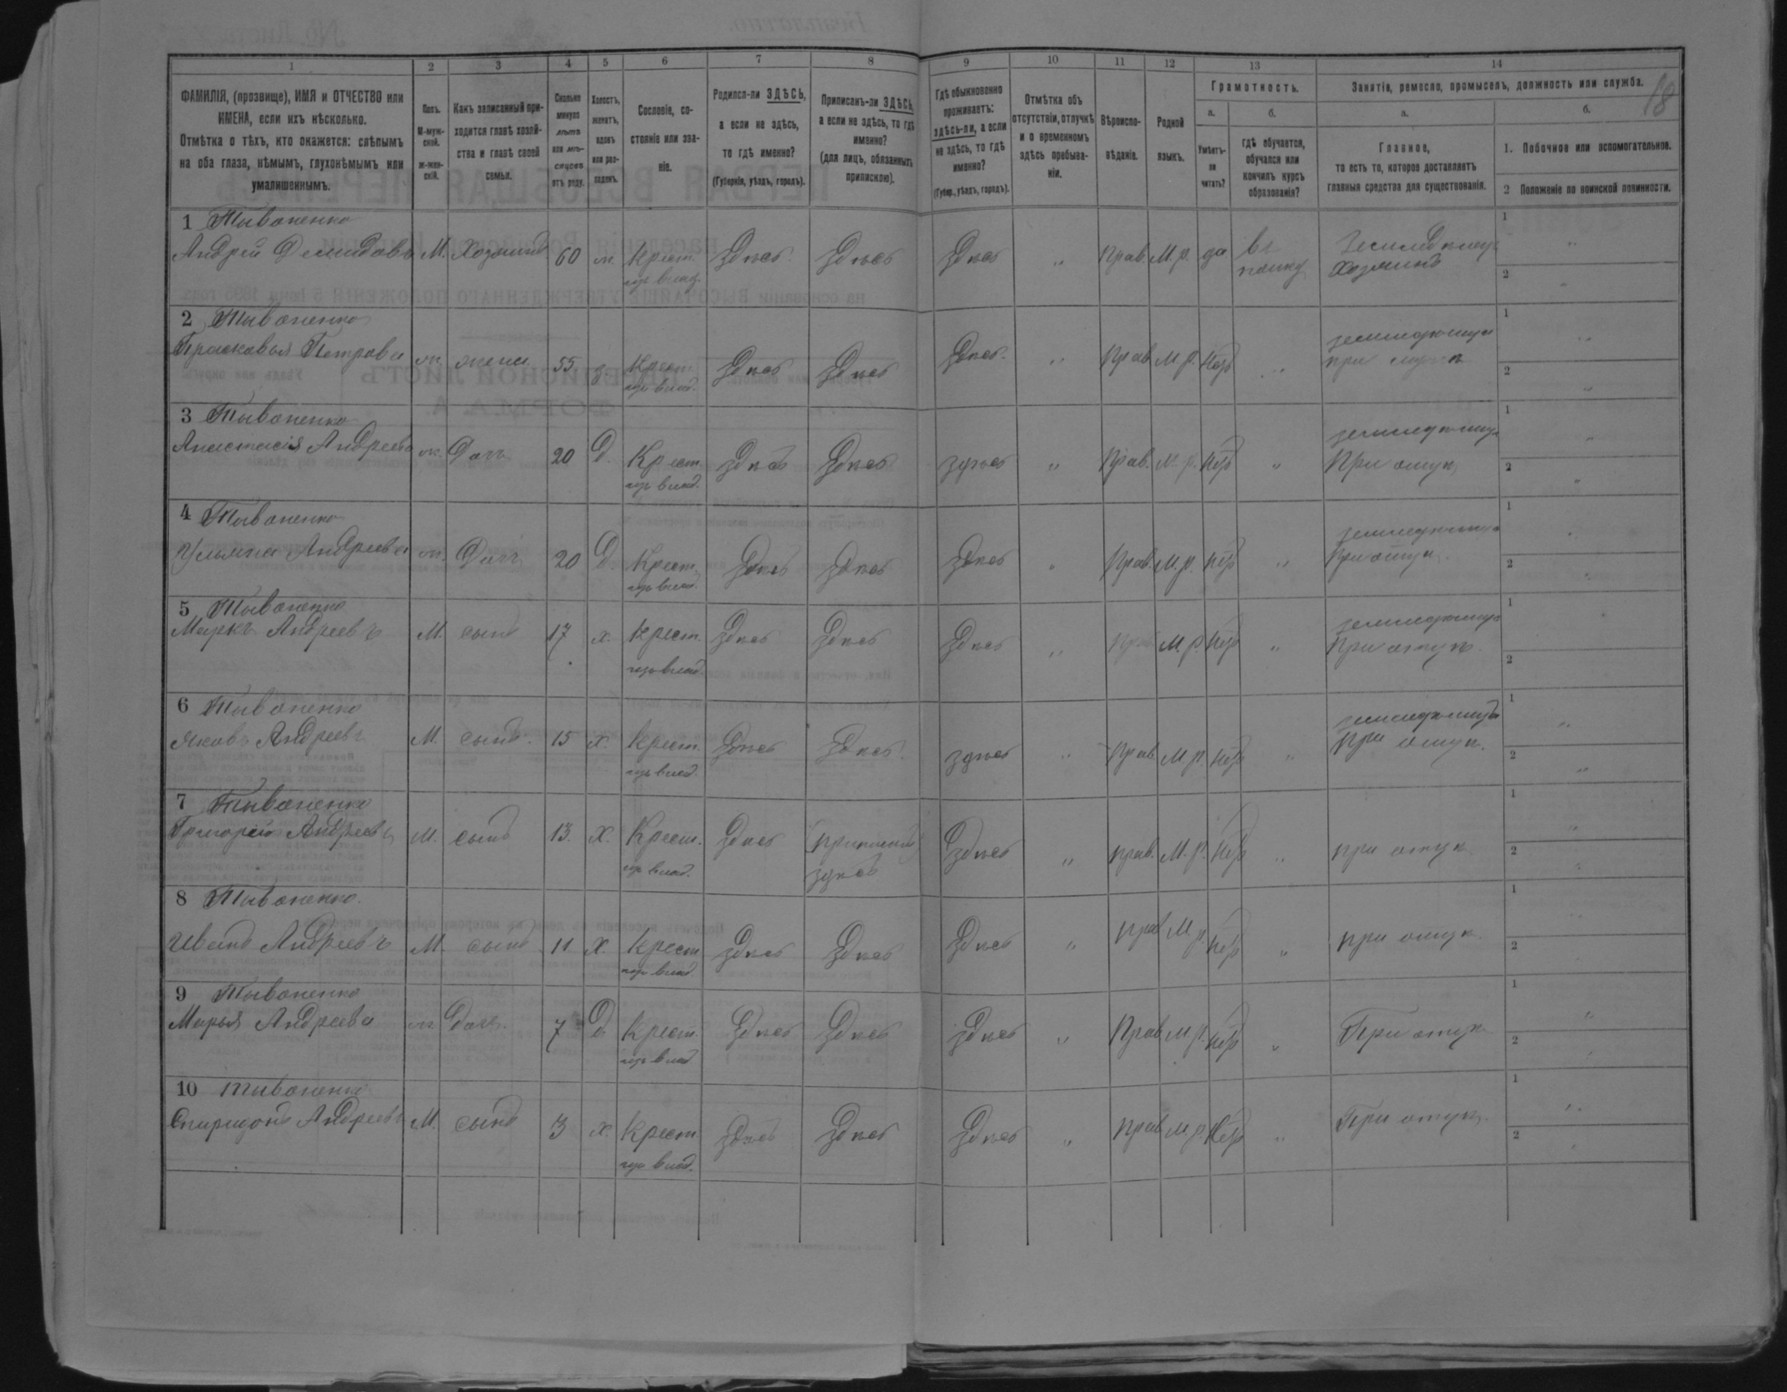 18
1 2 3 4 5 6 7 8 9 10 11 12 13 14
ФАМИЛІЯ, (прозвище), ИМЯ и ОТЧЕСТВО или
ИМЕНА, если ихъ нѣсколько.
Отмѣтка о тѣхъ, кто окажется: слѣпымъ
на оба глаза, нѣмымъ, глухонѣмымъ или
умалишеннымъ.
Полъ.
М-муж-
ской.
ж-жен-
скій.
Какъ записанный при-
ходится главѣ хозяй-
ства и главѣ своей
семьи.
Сколько
минуло
лѣтъ
или мѣ-
сяцевъ
отъ роду.
Холостъ,
женатъ,
вдовъ
или раз-
веденъ.
Сословіе, со-
стояніе или зва-
ніе.
Родился-ли ЗДѢСЬ,
а если не здѣсь,
то гдѣ именно?
(Губернія, уѣздъ, городъ).
Приписанъ-ли ЗДѢСЬ,
а если не здѣсь, то гдѣ
именно?
(для лицъ, обязанныхъ
припискою).
Гдѣ обыкновенно
проживаетъ:
здѣсь-ли, а если
не здѣсь, то гдѣ
именно?
(Губер., уѣздъ, городъ).
Отмѣтка объ
отсутствіи, отлучкѣ
и о временномъ
здѣсь пребыва-
ніи.
Вѣроиспо-
вѣданіе.
Родной
языкъ.
Грамотность.
а.
Умѣетъ-
ли
читать?
б.
гдѣ обучается,
обучался или
кончилъ курсъ
образованія?
Занятіе, ремесло, промыселъ, должность или служба.
а.
Главное,
то есть то, которое доставляетъ
главныя средства для существованія.
б.
1. Побочное или вспомогательное.
2 Положеніе по воинской повинности.
1 Тываненко
Андрей Демидовъ М. Хозяинъ 60 ж Крест. Здѣсь Здѣсь Здѣсь " Прав. М.р. да въ
Хозяинъ
2 Тываненко
Прасковья Петрова ж жена 55 з. Крест. Здѣсь Здѣсь Здѣсь " Прав. М.р. нѣтъ "
при мужѣ
3 Тываненко
Анастасія Андреева ж. Дочь 20 Д. Крест. Здѣсь Здѣсь здѣсь " Прав. М.р. нѣтъ "
При отцѣ
4 Тываненко
Ульяна Андреева ж. Дочь 20 Д. Крест. Здѣсь Здѣсь Здѣсь " Прав. М.р. нѣтъ "
При отцѣ
5 Тываненко
Маркъ Андреевъ М. сынъ 17 х. Крест. Здѣсь Здѣсь Здѣсь " Прав М.р. нѣтъ "
При отцѣ
6 Тываненко
Яковъ Андреевъ М. сынъ 15 х. Крест. Здѣсь Здѣсь здѣсь " Прав. М.р. нѣтъ "
При отцѣ.
7 Тываненко
Григорій Андреевъ М. сынъ 13. х. Крест. Здѣсь приписанъ Здѣсь " прав. М.р. нѣтъ " при отцѣ
здѣсь
8 Тываненко
Иванъ Андреевъ М. сынъ 11 х. Крест. Здѣсь Здѣсь Здѣсь " прав М.р. нѣтъ " при отцѣ
9 Тываненко
Марья Андреева ж Дочь 7 Д Крест. Здѣсь Здѣсь Здѣсь " Прав М.р. нѣтъ " При отцѣ
10 Тываненко
Спиридонъ Андреевъ М. сынъ 3 х. Крест. Здѣсь Здѣсь Здѣсь " Прав М.р. нѣтъ " При отцѣ